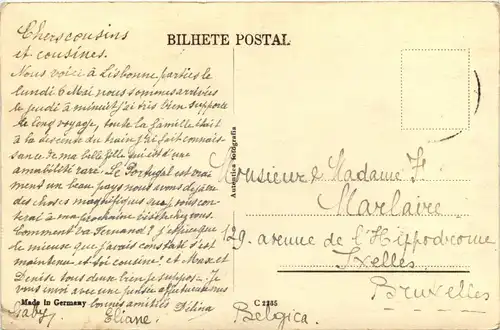 Chers cousins
et cousines.
Nous voici à Lisbonne parties le
lundi 6 Mai nous sommes arrivées
le jeudi à minuit j'ai très bien supporté
le long voyage, toute la famille était
à la descente du train j'ai fait connais
sance de ma belle fille qui est d'une
amabilité rare. Le Portugal est vrai
ment un beau pays nous avons déjà vu
des choses magnifiques que je vous con
terai à ma prochaine visite chez vous.
Comment va Fernand? j'espère que
le mieux que j'avais constaté s'est
maintenu et toi cousine? et Max et
Denise tous deux bien je suppose. Je
vous envoi avec une pensée affectueuse nos
bonnes amitiés Délina
Gaby Eliane
BILHETE POSTAL
Autentica fotografia
Monsieur & Madame F.
Marlaire
129. avenue de l'Hippodrome
Ixelles
Bruxelles
Belgica
Made in Germany
C 2235